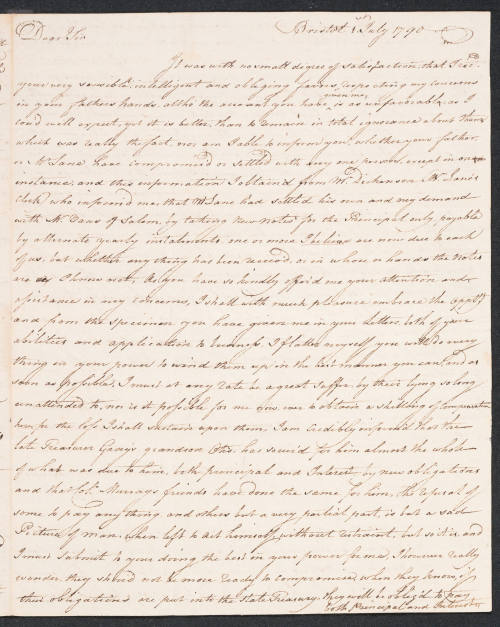 Bristol 1 July 1790
Dear Sir
It was with no small degree of satisfaction that I rec'd
your very sensible, intelligent and obliging favors, respecting my concerns
in your fathers hands, altho the account you have given me is as unfavorable, as I
could well expect, yet it is better, than to remain in total ignorance about them
which was really the fact, nor am I able to inform you, whether your father,
or Mr Lane have compromised or settled with any one person, except in one
instance, and this information I obtained from Mr Dickenson Mr Lane's
Clerk who informed me, that Mr Lane had settled his own and my demand
with Mr of Salem, by taking new Notes for the Principal only, payable
by alternate yearly instalments, one or more I believe are now due to each
of us, but whether any thing has been received, or in whose hands the Notes
are I know not. As you have so kindly offer'd me your attention and
assistance in my concerns, I shall with much pleasure embrace the
and from the specimen you have given me in your letters, both of your
abilities and application to business I flatter myself you will do every
thing in your power to wind them up in the best manner you can, and as
soon as possible; I must at any rate be a great suffer by their lying so long
unattended to, nor is it possible for me now, ever to obtain a shilling of compensation
from, for the loss I shall sustain upon them. I am credibly informed that the
late Treasurer Grays grandson has secured for him almost the whole
of what was due to him, both principal and Interest by new obligations
and that Col. Murrays friends have done the same for him, the refusal of
some to pay any thing and others but a very partial part, is but a sad
Picture of man, when left to act himself, without restraint, but so it is, and
I must submit to your doing the best in your power for me, I however really
wonder they should not be more ready to compromise, when they know, if
their obligations are put into the State Treasury, they will be obliged to pay
both Principal and Interest